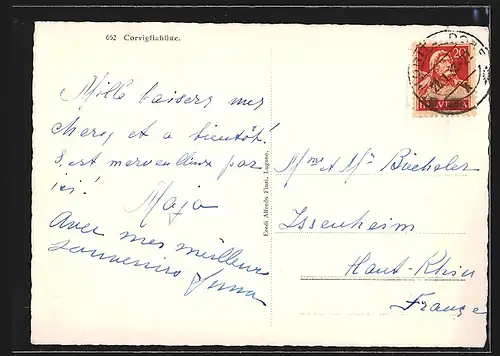 652 Corvigliahütte.
Mille baisers mes
chers et a bientôt!
S'est merveilleux par
ici!
Maja
Avec mes meilleurs
souvenirs
Eredi Alfredo Finzi, Lugano.
20
HELVETIA
Mme et Mr Buecheler
Issenheim
Haut-Rhin
France